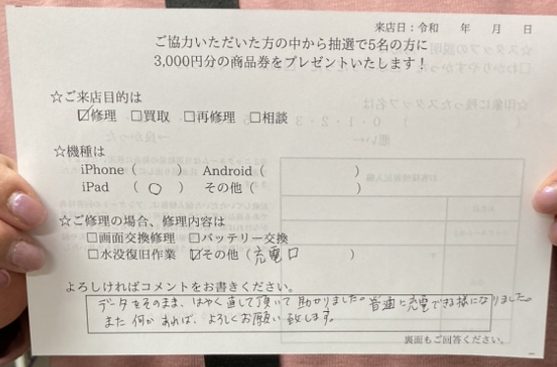 来店日：令和　　年　　月　　日
ご協力いただいた方の中から抽選で5名の方に
3,000円分の商品券をプレゼントいたします！
☆ご来店目的は
☑修理　□買取　□再修理　□相談
☆機種は
iPhone（　　　）　Android（　　　　　　　）
iPad　（ ○ ）　その他（　　　　　　　）
☆ご修理の場合、修理内容は
□画面交換修理　□バッテリー交換
□水没復旧作業　☑その他（充電口　　　）
よろしければコメントをお書きください。
データをそのまま、はやく直して頂いて助かりました。普通に充電できる様になりました。
また何かあれば、よろしくお願い致します。
裏面もご回答ください。